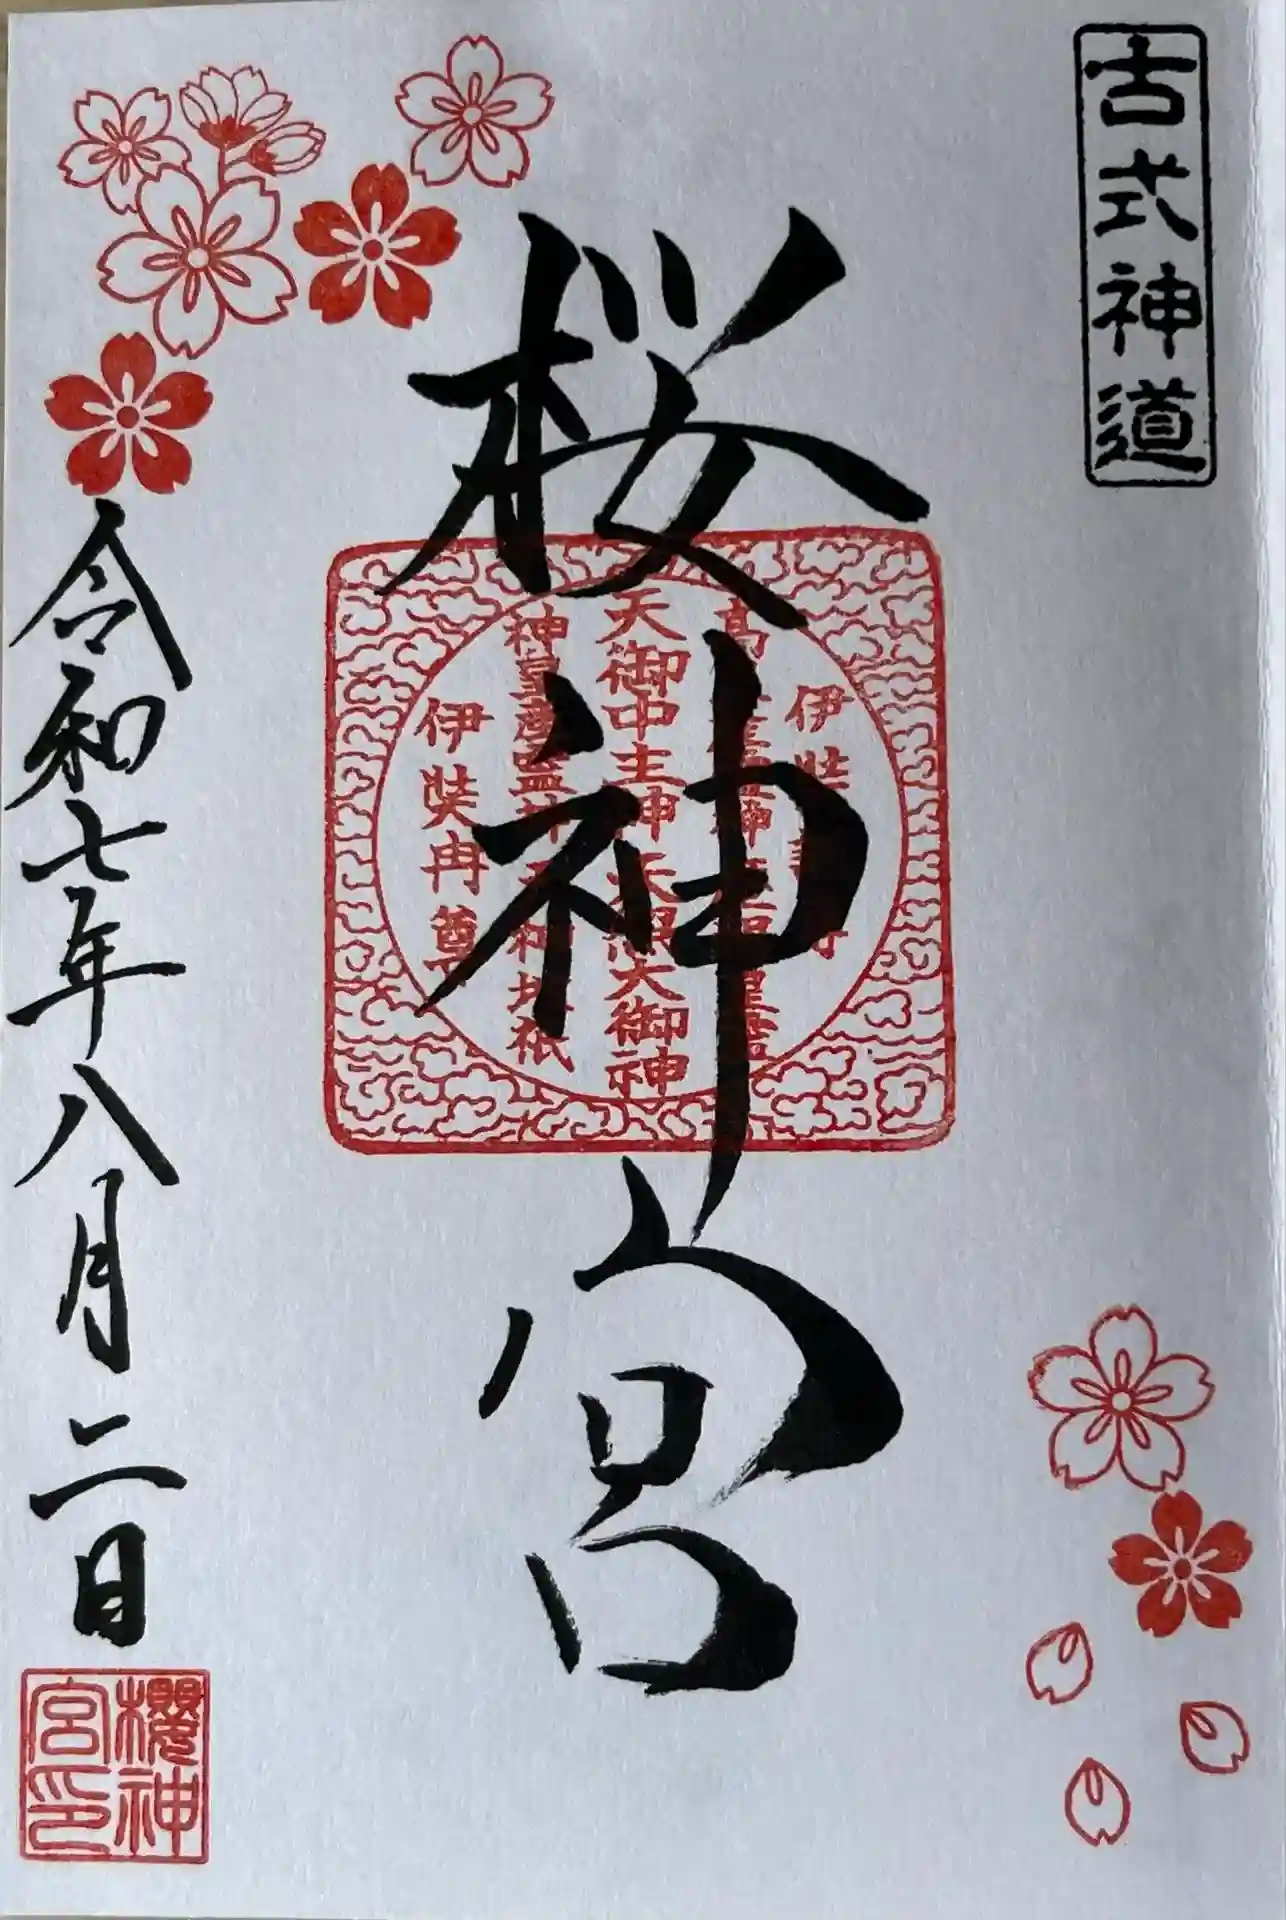 古式神道
桜神宮
伊弉 尊
高 産霊神 皇霊
天御中主神天照大御神
神皇産霊神天神地祇
伊弉冉尊
令和七年八月二日
櫻神
宮印